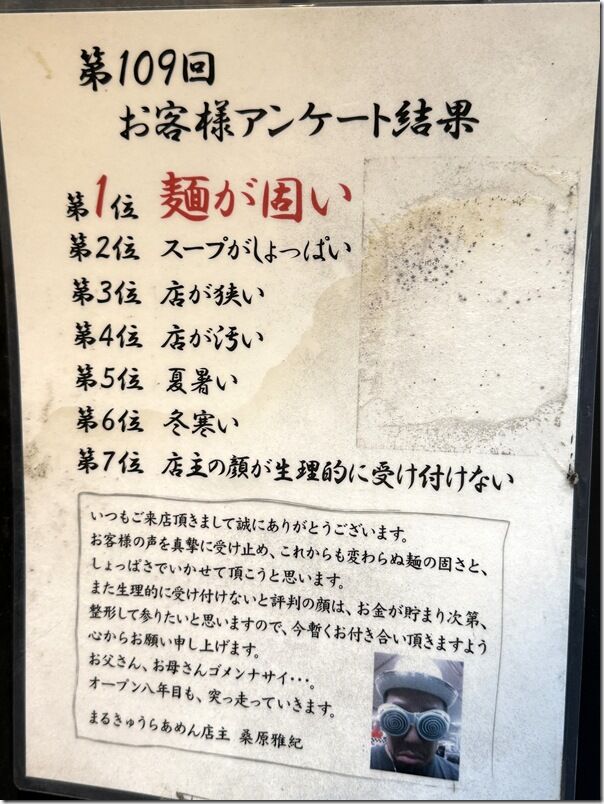 第109回
お客様アンケート結果
第1位 麺が固い
第2位 スープがしょっぱい
第3位 店が狭い
第4位 店が汚い
第5位 夏暑い
第6位 冬寒い
第7位 店主の顔が生理的に受け付けない
いつもご来店頂きまして誠にありがとうございます。
お客様の声を真摯に受け止め、これからも変わらぬ麺の固さと、
しょっぱさでいかせて頂こうと思います。
また生理的に受け付けないと評判の顔は、お金が貯まり次第、
整形して参りたいと思いますので、今暫くお付き合い頂きますよう
心からお願い申し上げます。
お父さん、お母さんゴメンナサイ・・・。
オープン八年目も、突っ走っていきます。
まるきゅうらあめん店主 桑原雅紀